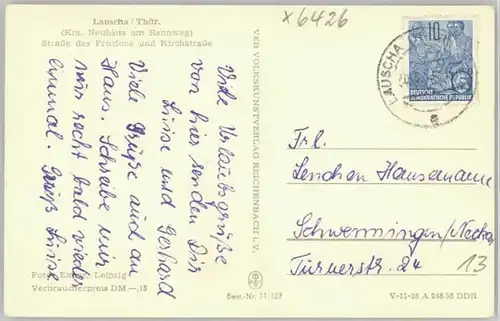 Lauscha / Thür.
(Krs. Neuhaus am Rennweg)
Straße des Friedens und Kirchstraße
Viele Urlaubsgrüße
von hier senden Dir
Luise und Gerhard
Viele Grüße auch an
Hans. Schreibe mir
nur recht bald wieder
einmal. Gruß Luise
Foto: Leipzig
Verbraucherpreis DM —,15
VEB VOLKSKUNSTVERLAG REICHENBACH I. V.
Best.-Nr. 11/107
x6426
LAUSCHA
10
DEUTSCHE
DEMOKRATISCHE REPUBLIK
Frl.
Lenchen Hansemann
Schwenningen/Neckar
Turnerstr. 24
13
V-11-28 A 268/56 DDR